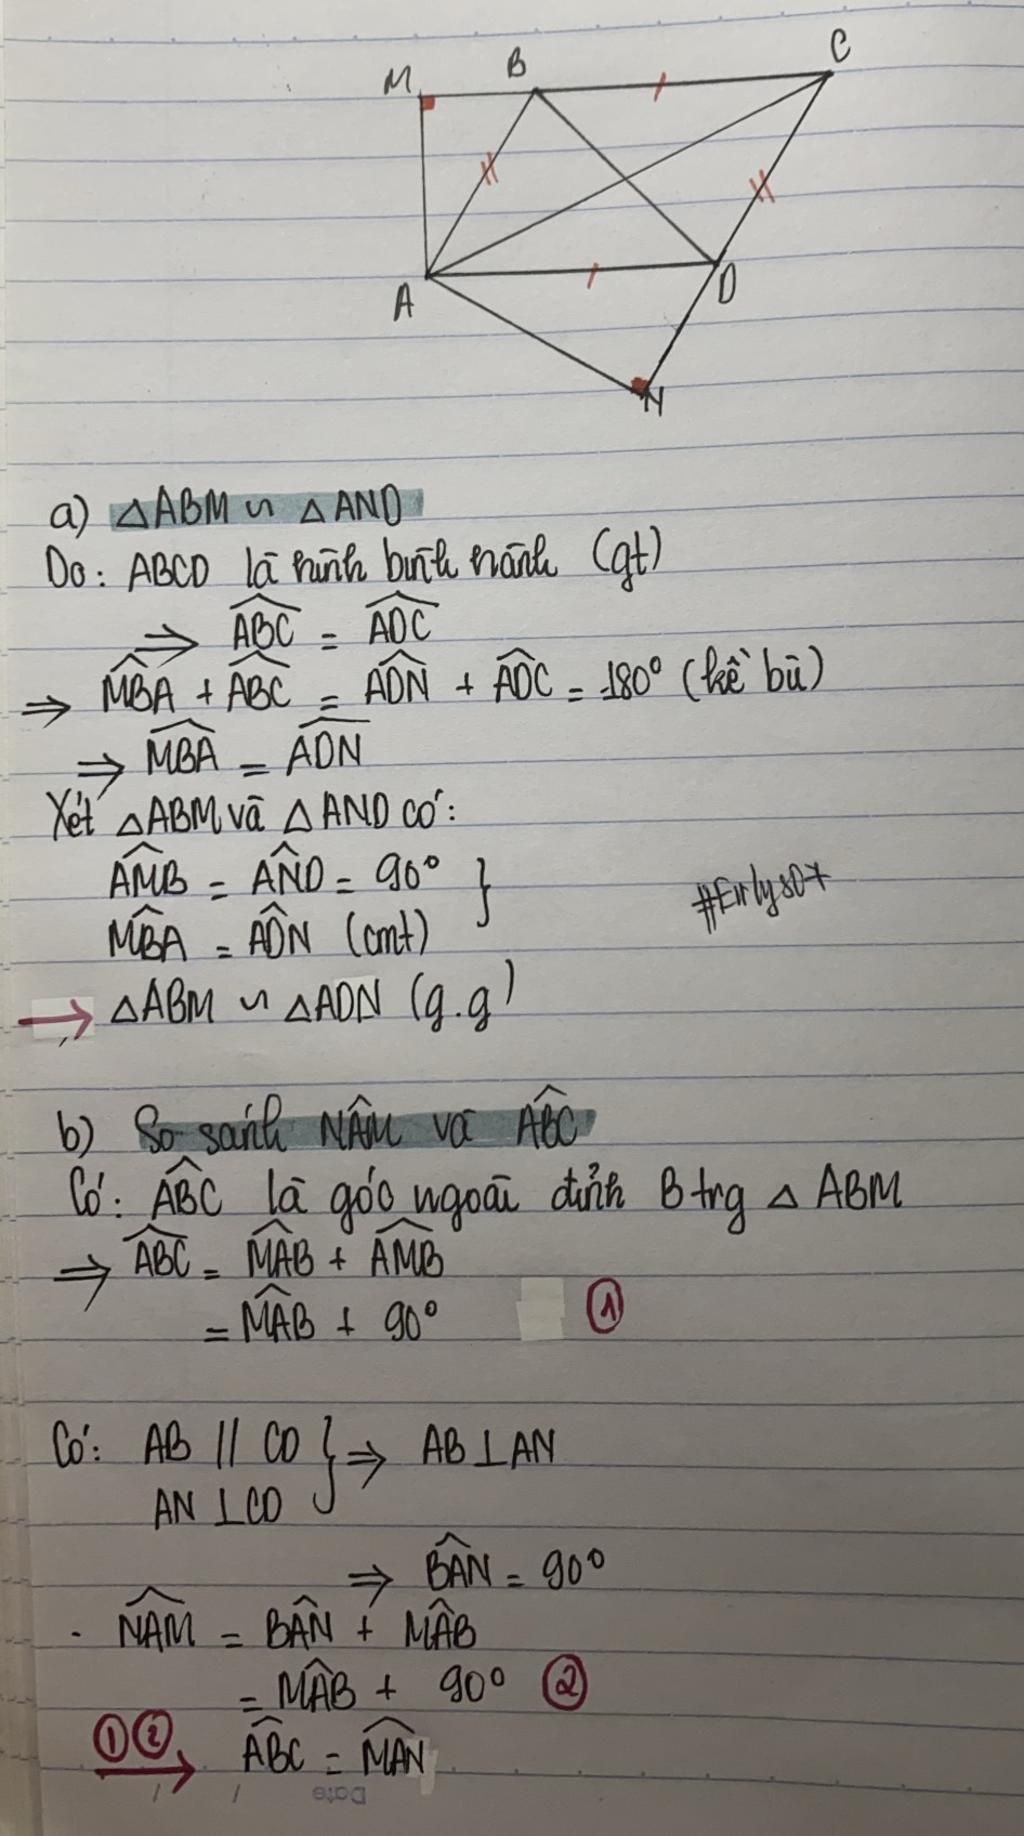 M B C
A D
N
a) △ABM ∽ △AND
Do: ABCD là hình bình hành (gt)
⇒ ABC^ = ADC^
⇒ MBA^ + ABC^ = ADN^ + ADC^ = 180° (kề bù)
⇒ MBA^ = ADN^
Xét △ABM và △AND có:
AMB^ = AND^ = 90° }
MBA^ = ADN^ (cmt)
→ △ABM ∽ △ADN (g.g)
b) So sánh NAM^ và ABC^
Có: ABC^ là góc ngoài đỉnh B trg △ ABM
⇒ ABC^ = MAB^ + AMB^
= MAB^ + 90° ①
Có: AB // CD } ⇒ AB ⊥ AN
AN ⊥ CD
⇒ BAN^ = 90°
. NAM^ = BAN^ + MAB^
= MAB^ + 90° ②
①② → ABC^ = MAN^
Date